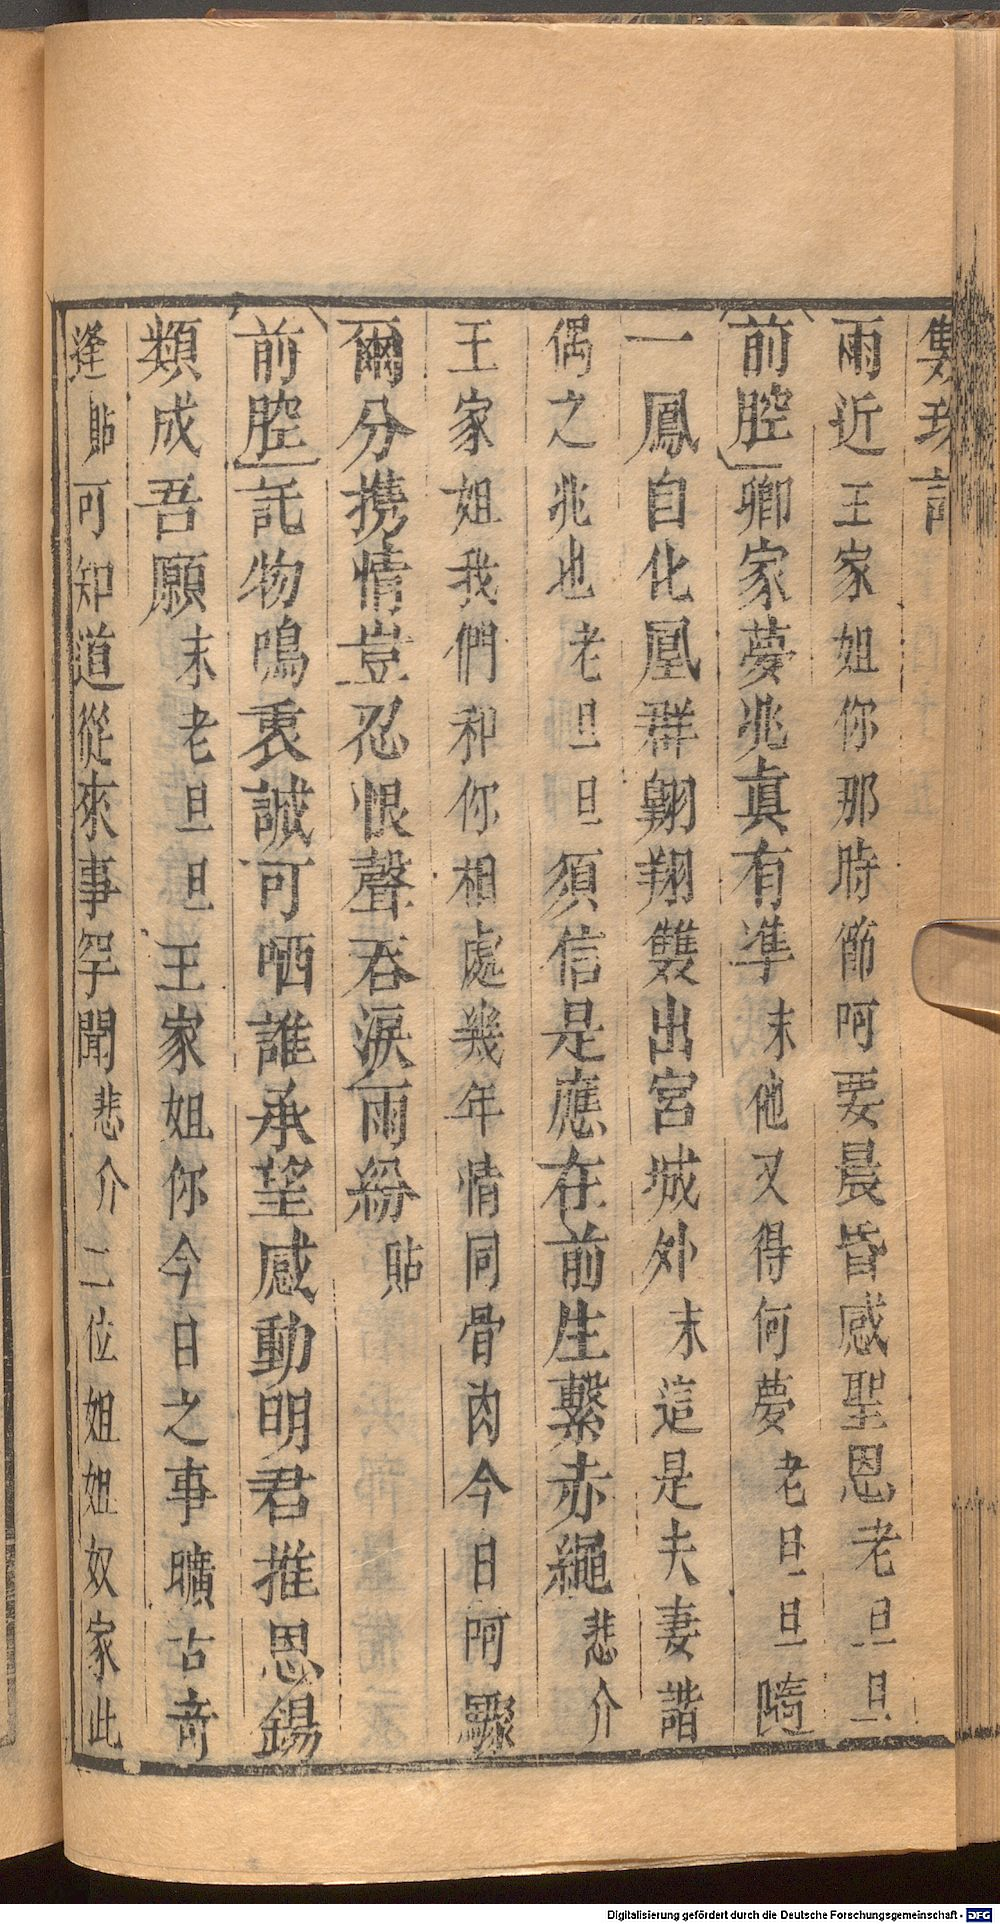 雙珠記
雨近王家姐你那時節呵要晨昏感聖恩老旦旦
前腔卿家夢兆眞有準末他又得何夢老旦旦
一鳳自化凰群翺翔雙出宮城外末這是夫妻諧
偶之兆也老旦旦須信是應在前生繫赤繩悲介
王家姐我們和你相處幾年情同骨肉今日呵驟
爾分携情豈忍恨聲吞淚雨紛貼
前腔託物鳴衷誠可哂誰承望感動明君推恩錫
類成吾願末老旦旦王家姐你今日之事曠古奇
逢貼可知道從來事罕聞悲介二位姐姐奴家此
Digitalisierung gefördert durch die Deutsche Forschungsgemeinschaft - DFG